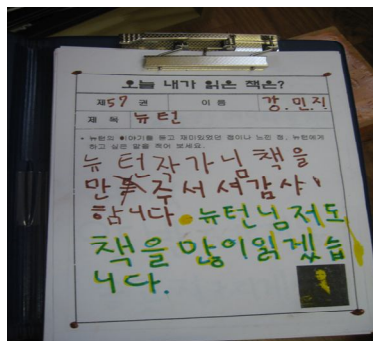 오늘 내가 읽은 책은?
제 57 권 이 름 강.민지
제 목 뉴턴
• 뉴턴의 이야기를 듣고 재미있었던 점이나 느낀 점, 뉴턴에게
하고 싶은 말을 적어 보세요.
뉴턴작가님책을
만 주서셔감사
합니다. 뉴턴님저도
책을 많이읽겠습
니다.